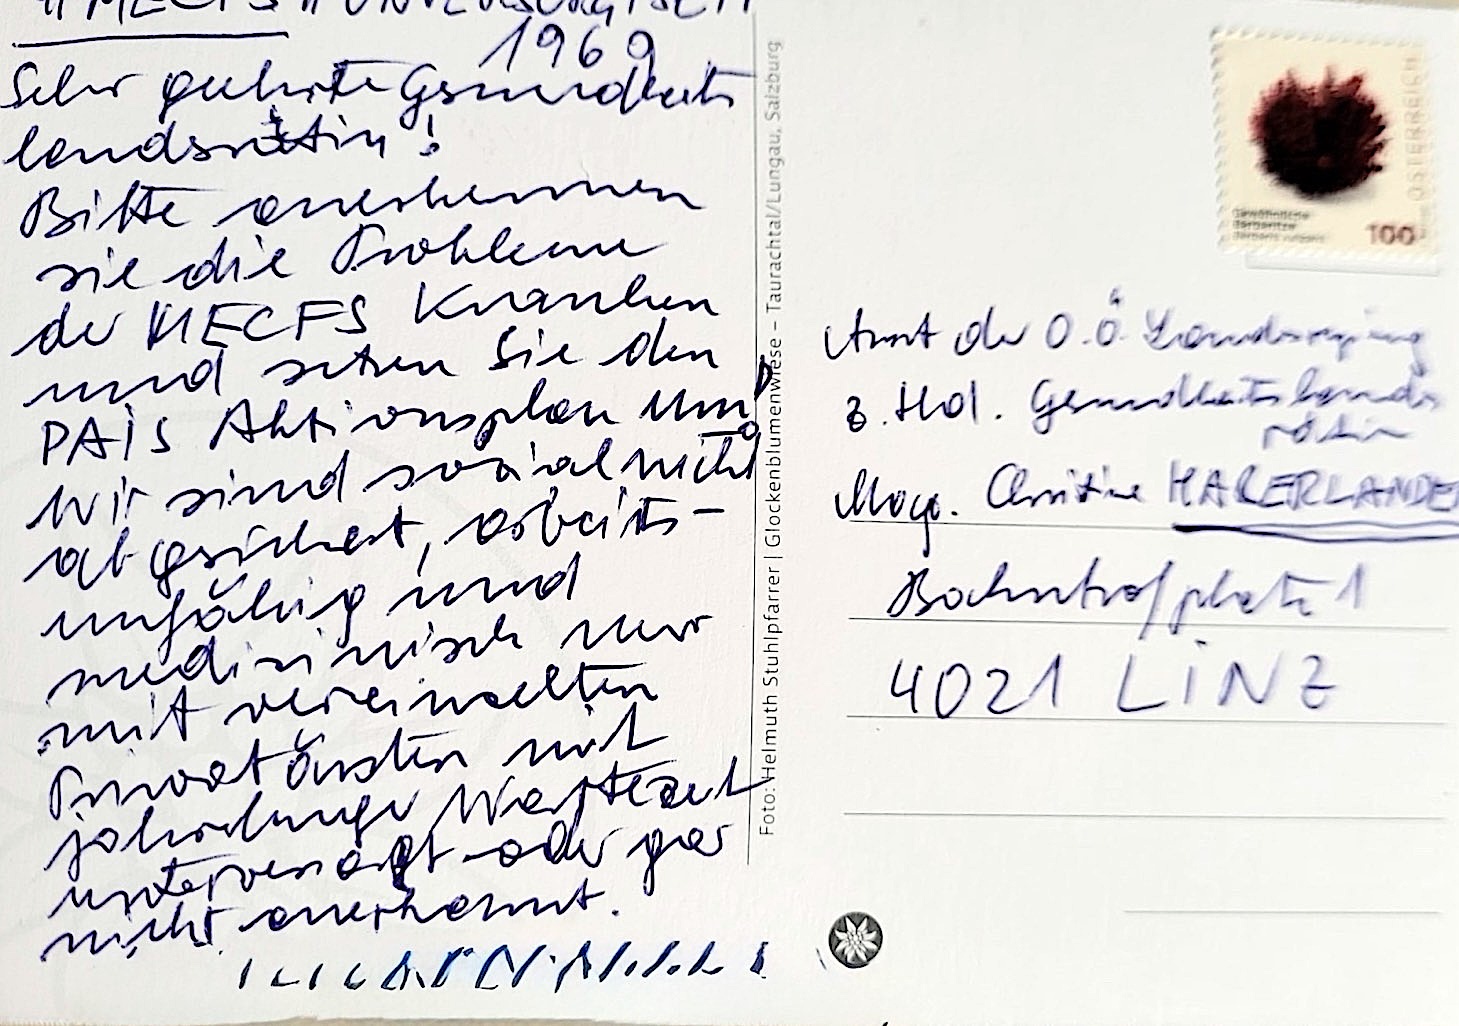 #MECFS #UNVERSORGTSEIT
1969
Sehr geehrte Gesundheits
landesrätin!
Bitte anerkennen
sie die Probleme
der MECFS Kranken
und setzen Sie den
PAIS Aktionsplan um!
Wir sind sozial nicht
abgesichert, arbeits-
unfähig und
medizinisch nur
mit vereinzelten
Privatärzten mit
jahrelanger Wartezeit
unterversorgt oder gar
nicht anerkannt.
Foto: Helmuth Stuhlpfarrer | Glockenblumenwiese – Taurachtal/Lungau, Salzburg
ÖSTERREICH
Gewöhnliche
Berberitze
Berberis vulgaris
100
Amt der O.Ö. Landesregierung
z. Hd. Gesundheitslandes
rätin
Mag. Christine HABERLANDER
Bahnhofplatz 1
4021 LINZ